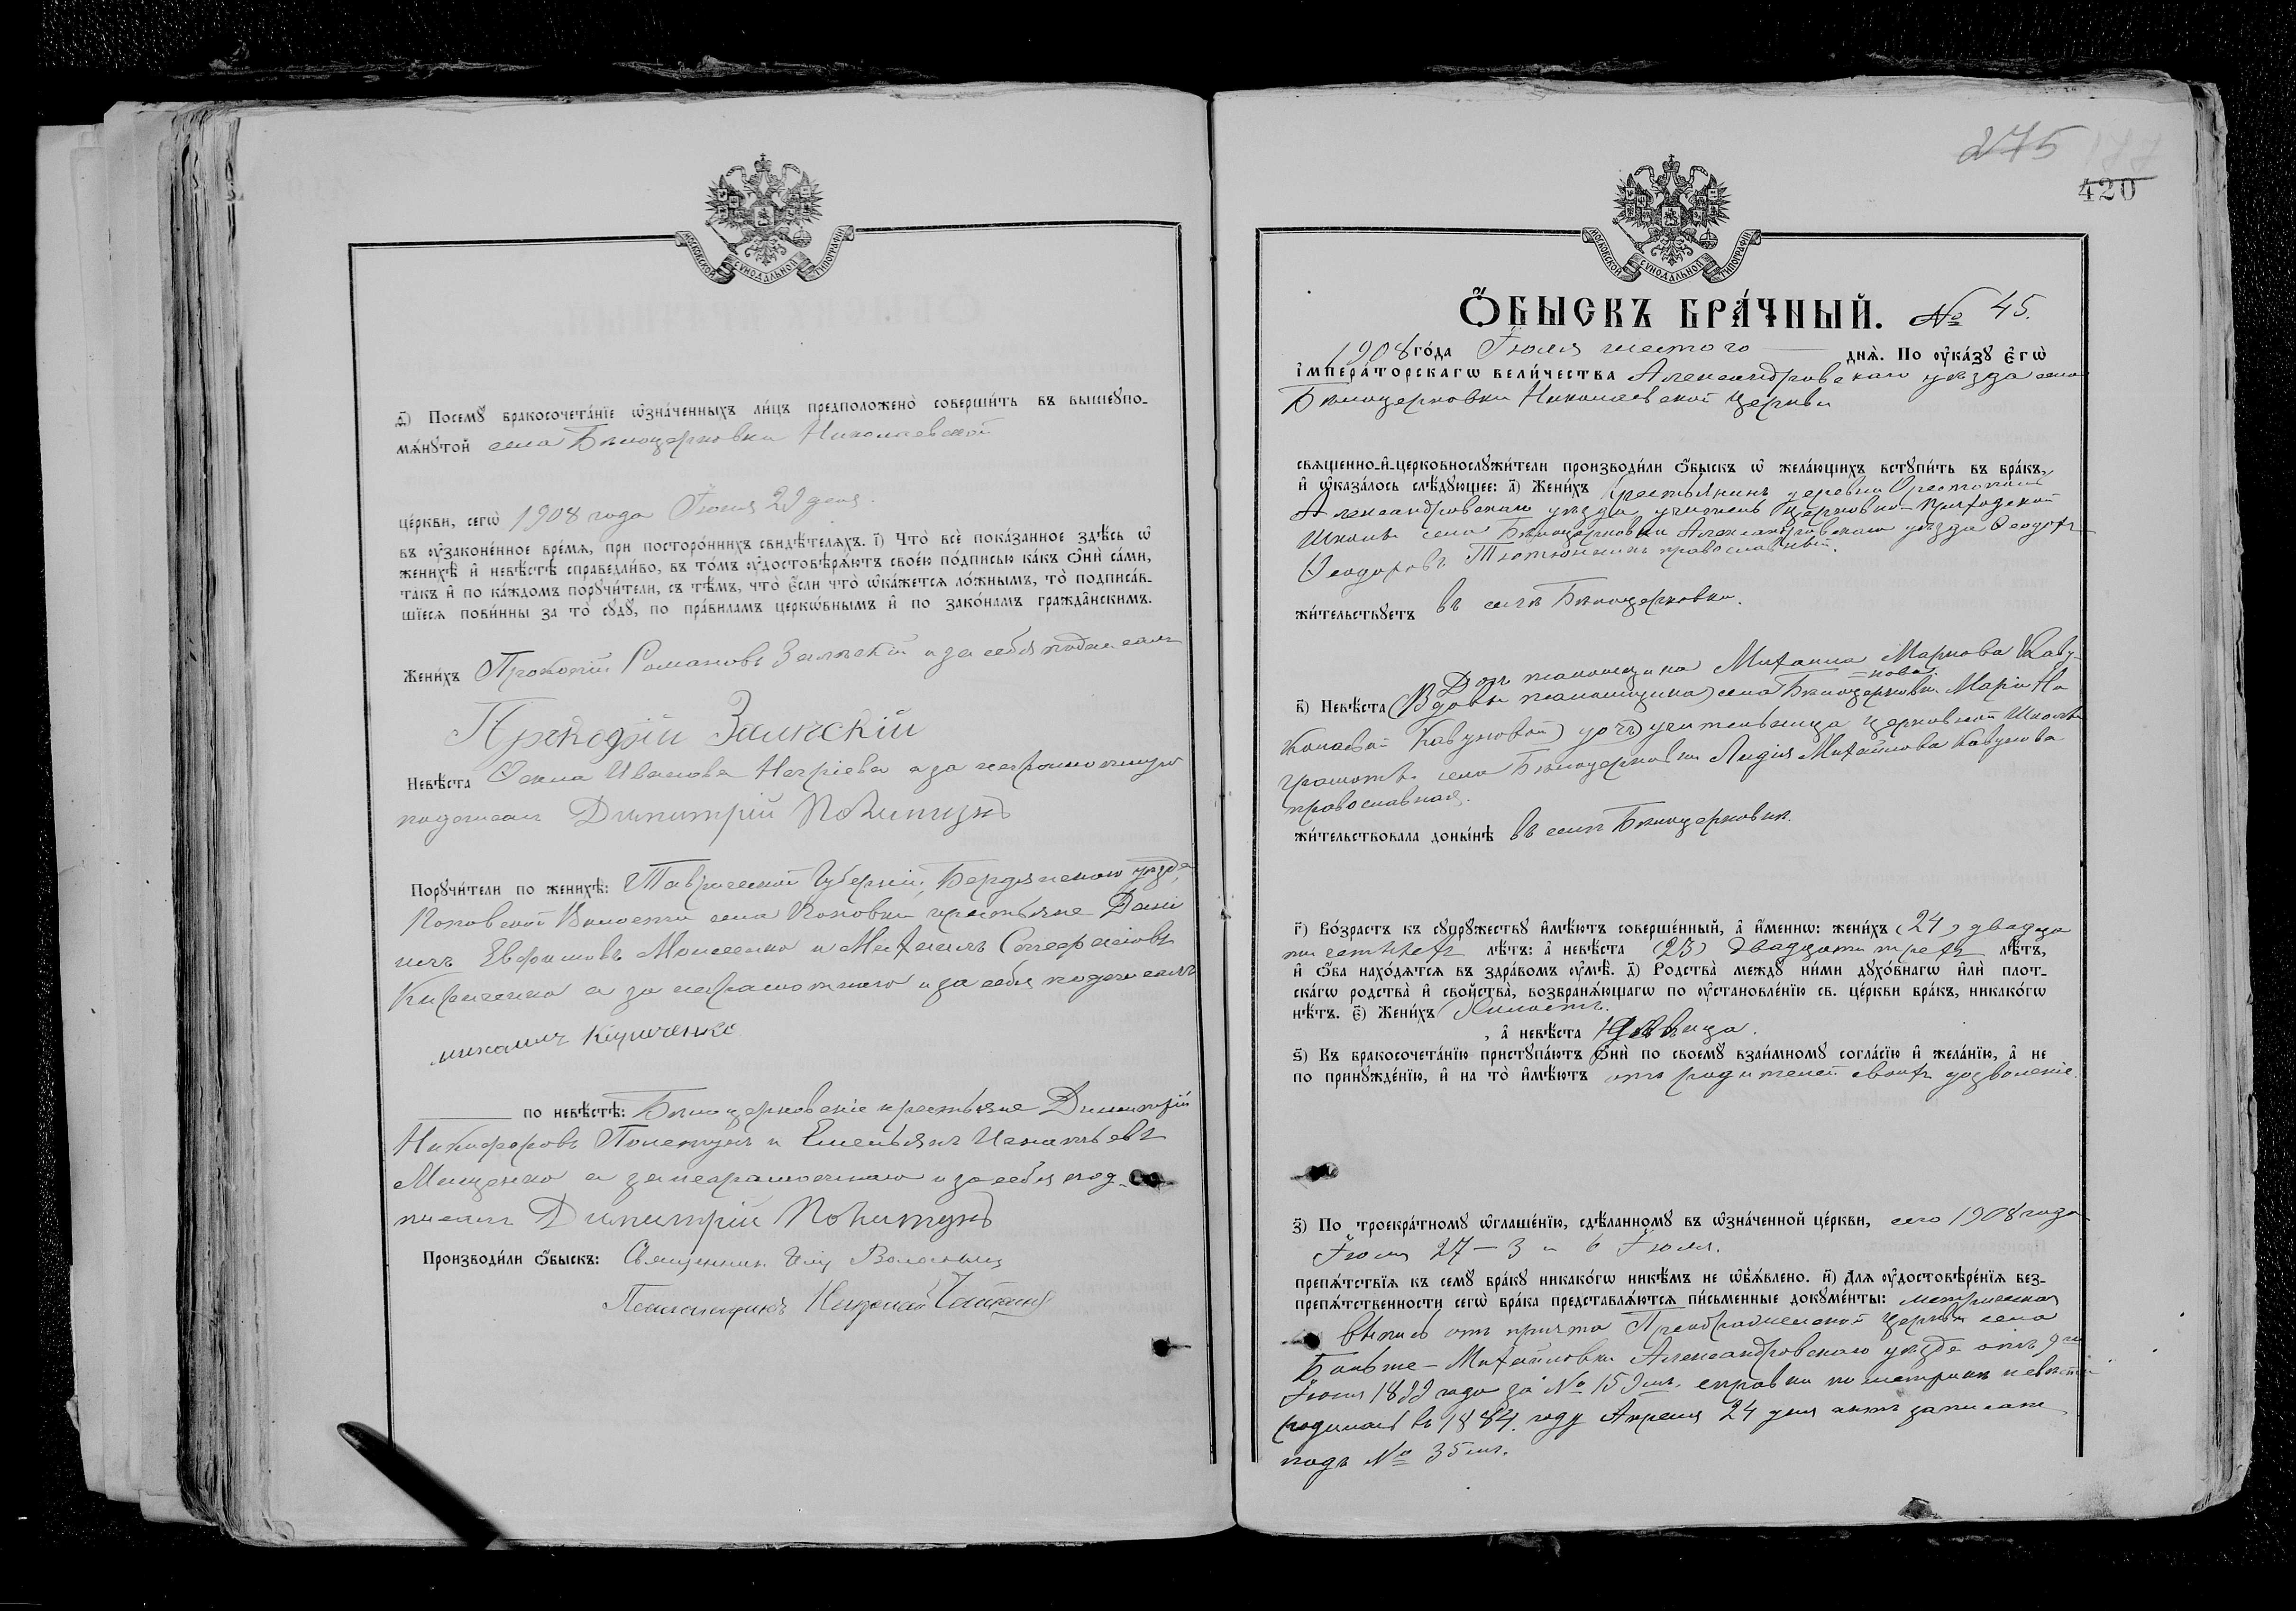 МОСКОВСКОЙ СѴНОДАЛЬНОЙ ТИПОГРАФІИ
ѳ҃) Посемꙋ̀ бракосочета́нїе ѡ҆зна́ченныхъ ли́цъ предположено̀ соверши́ть въ вышеꙋпо-
мѧ́нꙋтой села Бѣлоцерковки Николаевской
це́ркви, сегѡ̀ 1908 года Іюня 29 дня.
въ ᲂу҆законе́нное вре́мѧ, при посторо́ннихъ свидѣ́телѧхъ. і҃) Что̀ всѐ пока́занное здѣ́сь ѡ҆
женихѣ̀ и҆ невѣ́стѣ справедли́во, въ то́мъ ᲂу҆достовѣрѧ́ютъ свое́ю по́дписью ка́къ ѻ҆нѝ са́ми,
та́къ и҆ по ка́ждомъ порꙋчи́тели, съ тѣ́мъ, что̀ є҆́сли что̀ ѡ҆ка́жетсѧ ло́жнымъ, то̀ подписа́в-
шїесѧ пови́нны за то̀ сꙋдꙋ̀, по пра́виламъ церкѡ́внымъ и҆ по зако́намъ гражда̂нскимъ.
Жени́хъ Прокофій Романовъ Залѣскій и за себя подписалъ
Прокофій Залѣскій
Невѣ́ста Ѳекла Иванова а за неграмотную
подписалъ Димитрій Полетунъ
Порꙋчи́тели по женихѣ̀: Таврической Губерніи, Бердянского уѣзда,
Поповской Волости села Поповки крестьяне Дани
илъ Евфимовъ Моисеенко и Михаилъ Стефановъ
Кириченко а за неграмотного и за себя подписалъ
михаилъ Кириченко
по невѣ́стѣ: Бѣлоцерковскіе крестьяне Димитрій
Никифоровъ Полетунъ и Емельянъ Игнатьевъ
а за неграмотного и за себя под-
писалъ Димитрій Полетунъ
Производи́ли ѻ҆́быскъ: Священник
Псаломщикъ Николай
275
420
МОСКОВСКОЙ СѴНОДАЛЬНОЙ ТИПОГРАФІИ
Ѻ҆́БЫСКЪ БРА́ЧНЫЙ. № 45.
1908 го́да Іюля шестого днѧ̀. По ᲂу҆ка́зꙋ є҆гѡ̀
і҆мпера́торскагѡ вели́чества Александровскаго уѣзда села
Бѣлоцерковки Николаевской Церкви
свѧще́нно-и҆-церковнослꙋжи́тели производи́ли ѻ҆́быскъ ѡ҆ жела́ющихъ встꙋпи́ть въ бра́къ,
и҆ ѡ҆каза́лось слѣ́дꙋющее: а҃) Жени́хъ Крестьянинъ деревни
Александровскаго уѣзда, учитель Церковно-Приходской
Школы села Бѣлоцерковки Александровскаго уѣзда Ѳеодоръ
Ѳеодоровъ Тютюнникъ православный.
жи́тельствꙋетъ въ селѣ Бѣлоцерковки.
Дочь псаломщика Михаила Маркова Каву-
нова.
в҃) Невѣ́ста (Вдовы псаломщика) села Бѣлоцерковки Маріи Ни
колаевой Кавуновой) дочь) учительница Церковной Школы
грамоты села Бѣлоцерковки Лидія Михайлова Кавунова
православная.
жи́тельствовала доны́нѣ въ селѣ Бѣлоцерковкѣ.
г҃) Во́зрастъ къ сꙋпрꙋ́жествꙋ и҆мѣ́ютъ соверше́нный, а҆ и҆́меннѡ: жени́хъ (24) двадца
ти четырехъ лѣ́тъ: а҆ невѣ́ста (23) двадцати трехъ лѣ́тъ,
и҆ ѻ҆́ба нахо́дѧтсѧ въ здра́вомъ ᲂу҆мѣ̀. д҃) Родства̀ междꙋ̀ ни́ми дꙋхо́внагѡ и҆лѝ плот-
ска́гѡ родства̀ и҆ свойства̀, возбранѧ́ющагѡ по ᲂу҆становле́нїю св. це́ркви бра́къ, никако́гѡ
нѣ́тъ. є҃) Жени́хъ Холостъ.
, а҆ невѣ́ста дѣвица.
ѕ҃) Къ бракосочета́нїю пристꙋпа́ютъ ѻ҆нѝ по своемꙋ̀ взаи́мномꙋ согла́сїю и҆ жела́нїю, а҆ не
по принꙋжде́нїю, и҆ на то̀ и҆мѣ́ютъ отъ родителей своихъ дозволеніе.
з҃) По троекра́тномꙋ ѡ҆глаше́нїю, сдѣ́ланномꙋ въ ѡ҆зна́ченной це́ркви, сего 1908 года
Іюня 27 – 3 и 6 Іюля.
препѧ́тствїѧ къ семꙋ̀ бра́кꙋ никако́гѡ никѣ́мъ не ѡ҆б̾ѧ́влено. и҃) Длѧ ᲂу҆достовѣре́нїѧ без-
препѧ́тственности сегѡ̀ бра́ка представлѧ́ютсѧ пи́сьменные докꙋме́нты: метрическая
выпись отъ причта Преображенской Церкви села
Больше-Михайловки Александровскаго уѣзда отъ 9го
Іюня 1899 года за № 159мъ. справки по метрикѣ невѣста
родилась въ 1884. году Апреля 24 дня актъ записанъ
подъ № 35мъ.